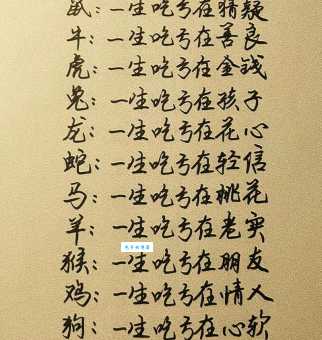 鼠：一生吃亏在猜疑
牛：一生吃亏在善良
虎：一生吃亏在金钱
兔：一生吃亏在孩子
龙：一生吃亏在花心
蛇：一生吃亏在轻信
马：一生吃亏在桃花
羊：一生吃亏在老实
猴：一生吃亏在朋友
鸡：一生吃亏在情人
狗：一生吃亏在心软